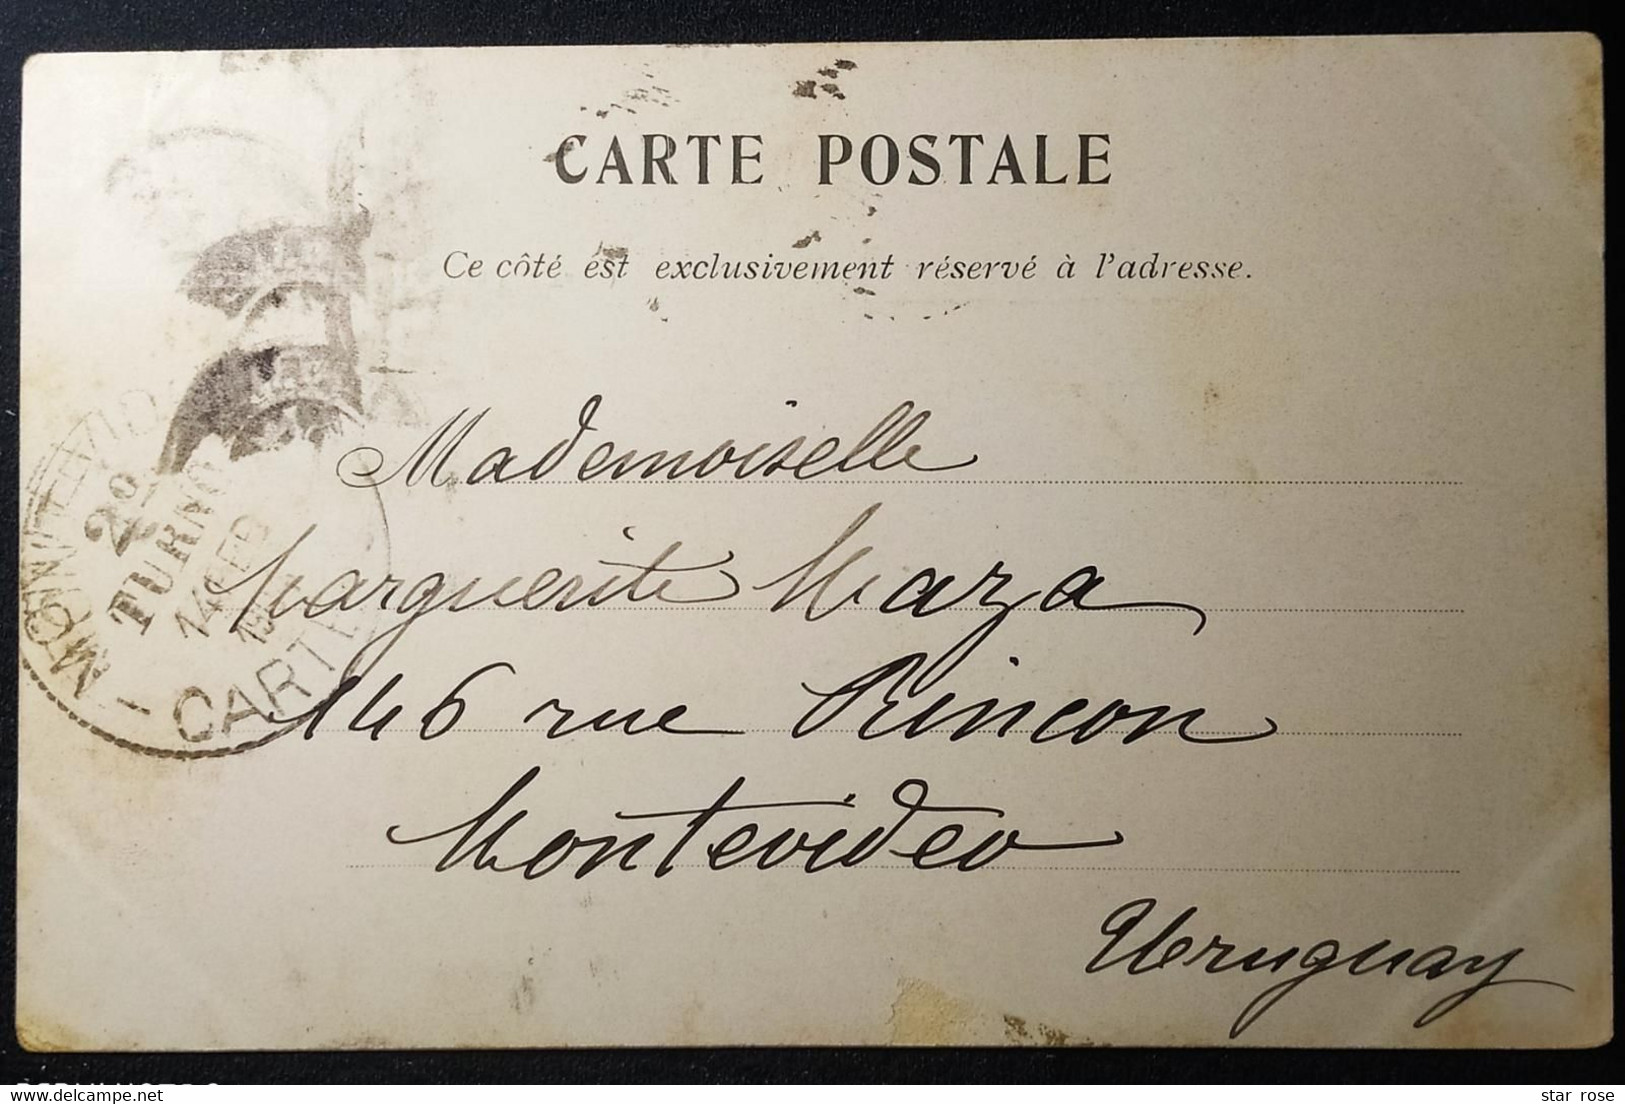 CARTE POSTALE
Ce côté est exclusivement réservé à l'adresse.
Mademoiselle
Marguerite Maza
146 rue Rincon
Montevideo
Uruguay
MONTEVIDEO
2º
TURNO
14 FEB
CARTE
star rose